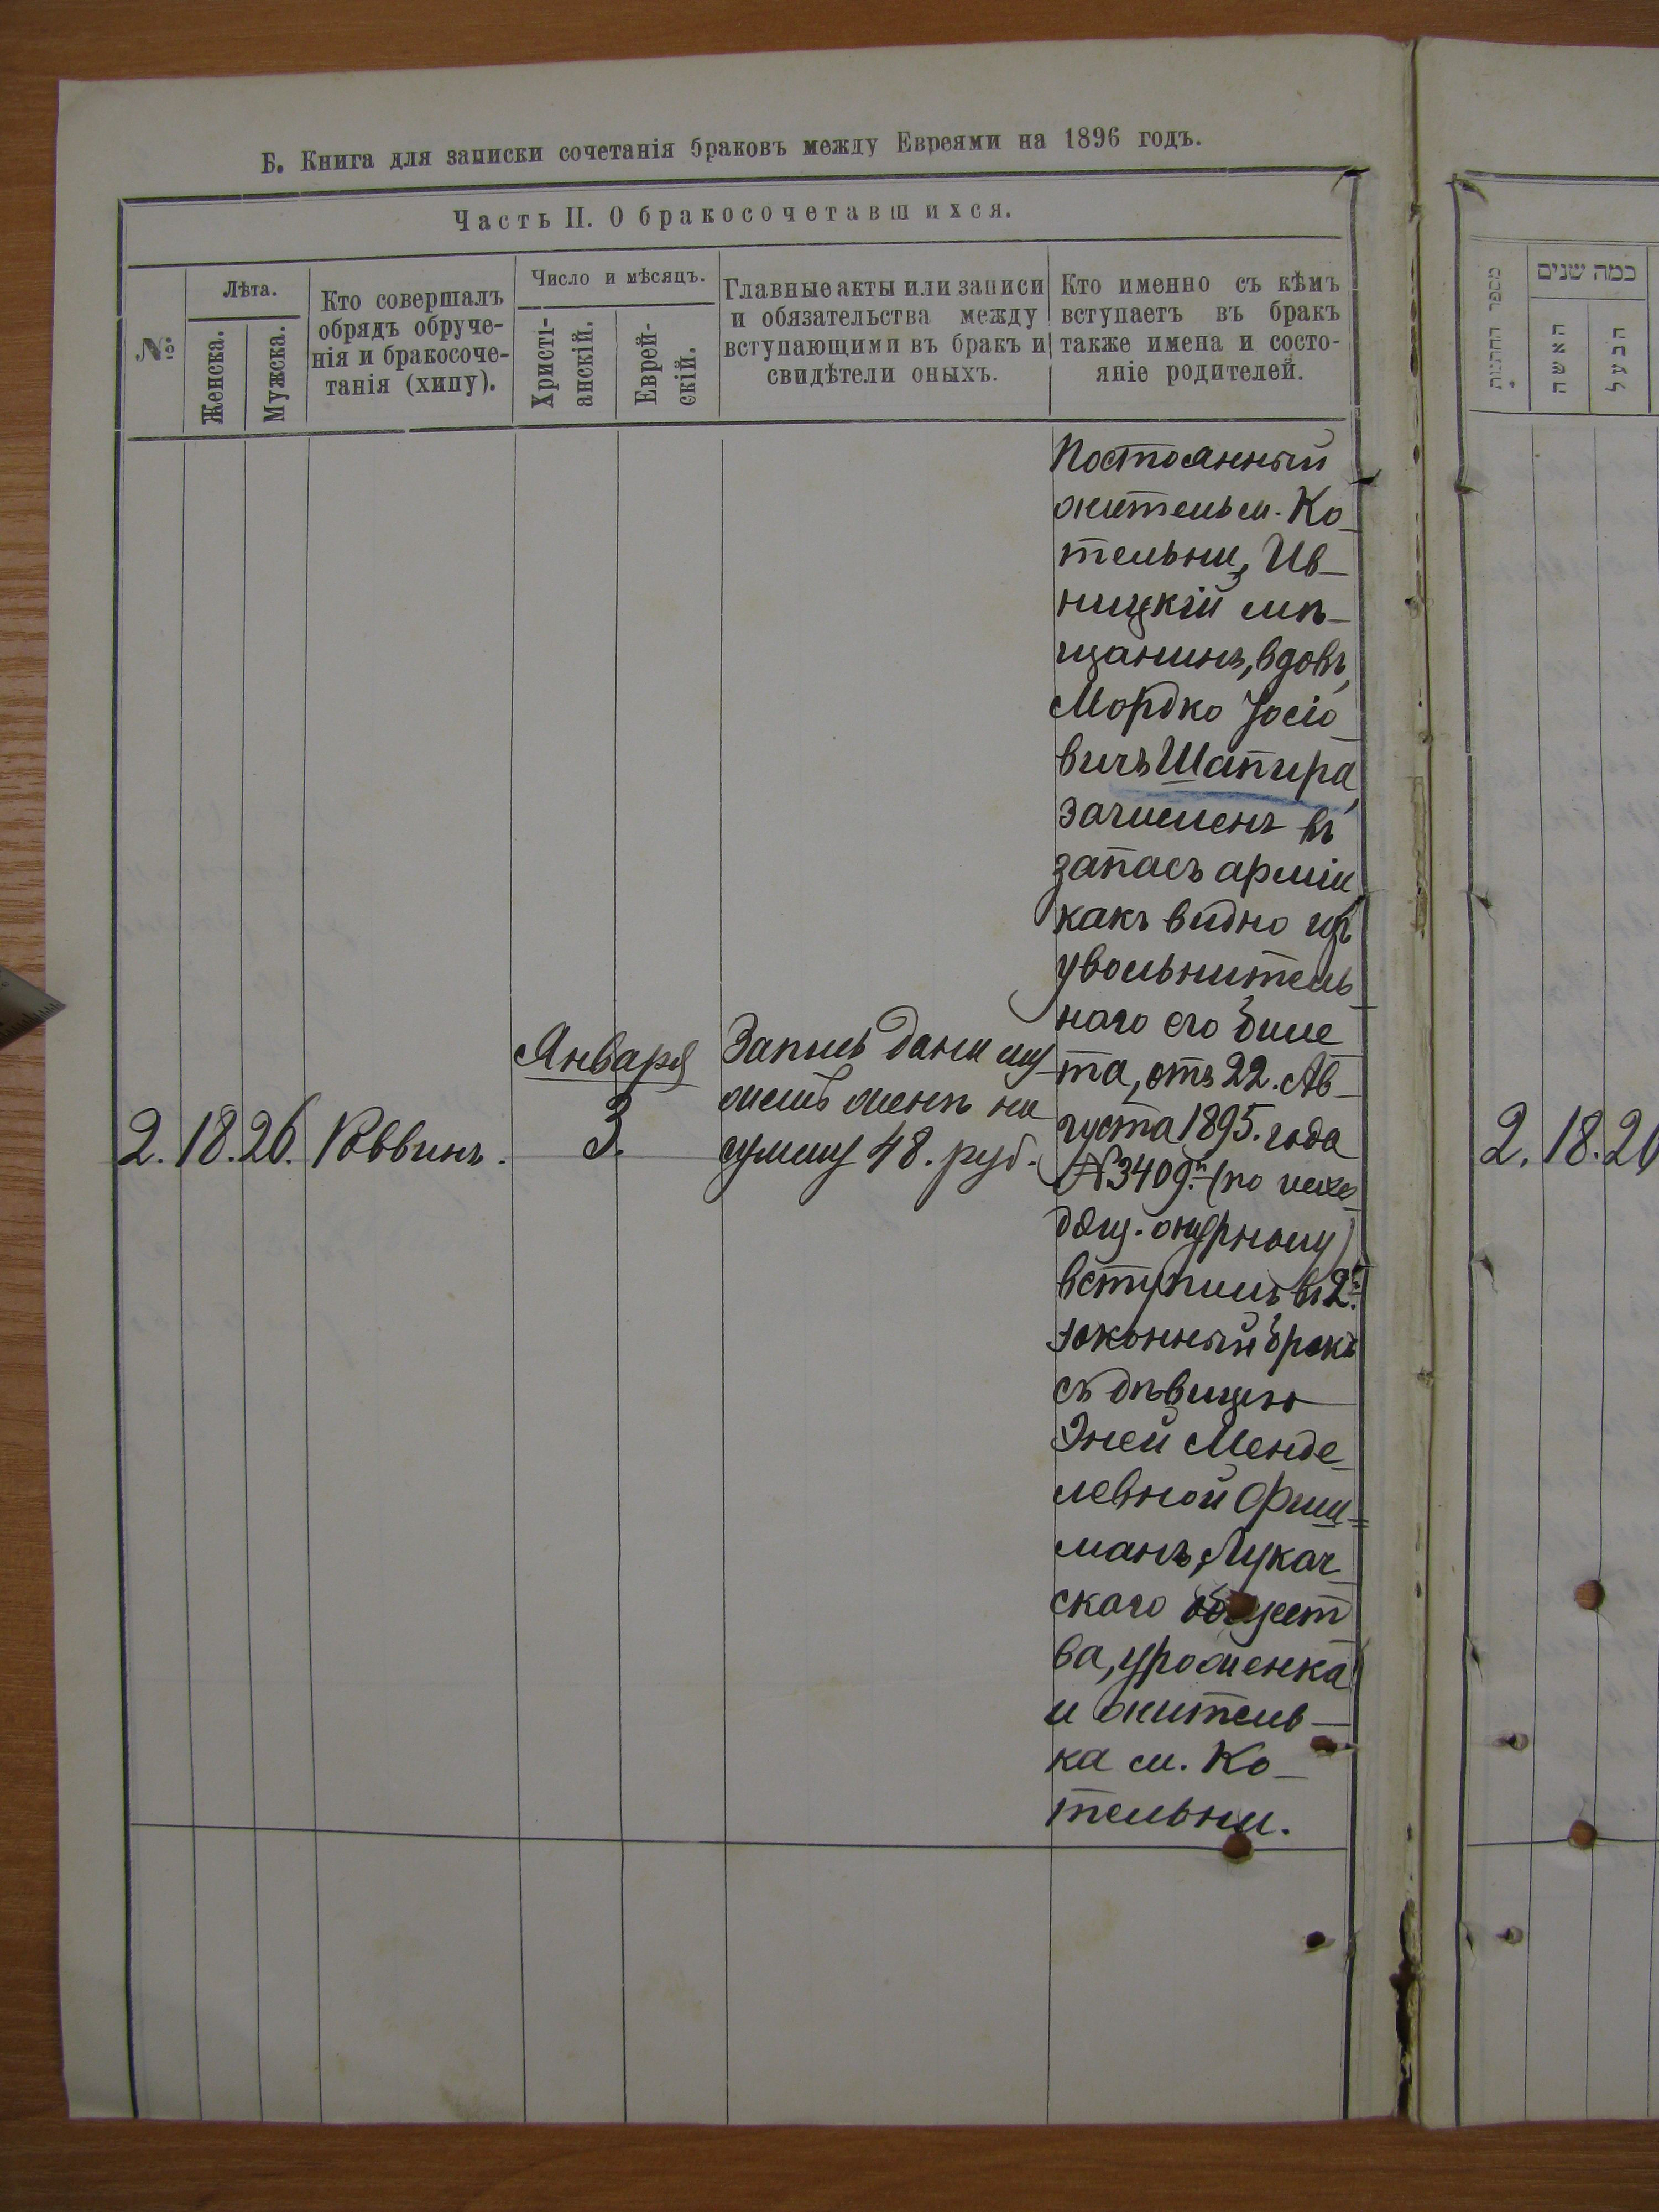 Б. Книга для записки сочетанія браковъ между Евреями на 1896 годъ.
Часть II. О бракосочетавшихся.
№
Лѣта.
Женска.
Мужска.
Кто совершалъ
обрядъ обруче-
нія и бракосоче-
танія (хипу).
Число и мѣсяцъ.
Христі-
анскій.
Еврей-
скій.
Главные акты или записи
и обязательства между
вступающими въ бракъ и
свидѣтели оныхъ.
Кто именно съ кѣмъ
вступаетъ въ бракъ
также имена и состо-
яніе родителей.
2. 18. 26. Раввинъ.
Января
3.
Запись дана му
жемъ женѣ на
сумму 48. руб.
Постоянный
житель м. Ко
тельни, Ив-
ницкій мѣ-
щанинъ, вдовъ,
Мордко Іосіо
вичъ Шапира,
зачисленъ въ
запасъ арміи,
какъ видно изъ
увольнитель
наго его биле
та, отъ 22. Ав-
густа 1895. года
№ 3409. (по
вступилъ въ 2й
законный бракъ
съ дѣвицею
Эней Менде-
левной Фиш=
манъ, Лукач
скаго общест
ва, уроженка
и житель-
ка м. Ко-
тельни.
מספר החתונות
כמה שנים
האשה
הבעל
2. 18. 2